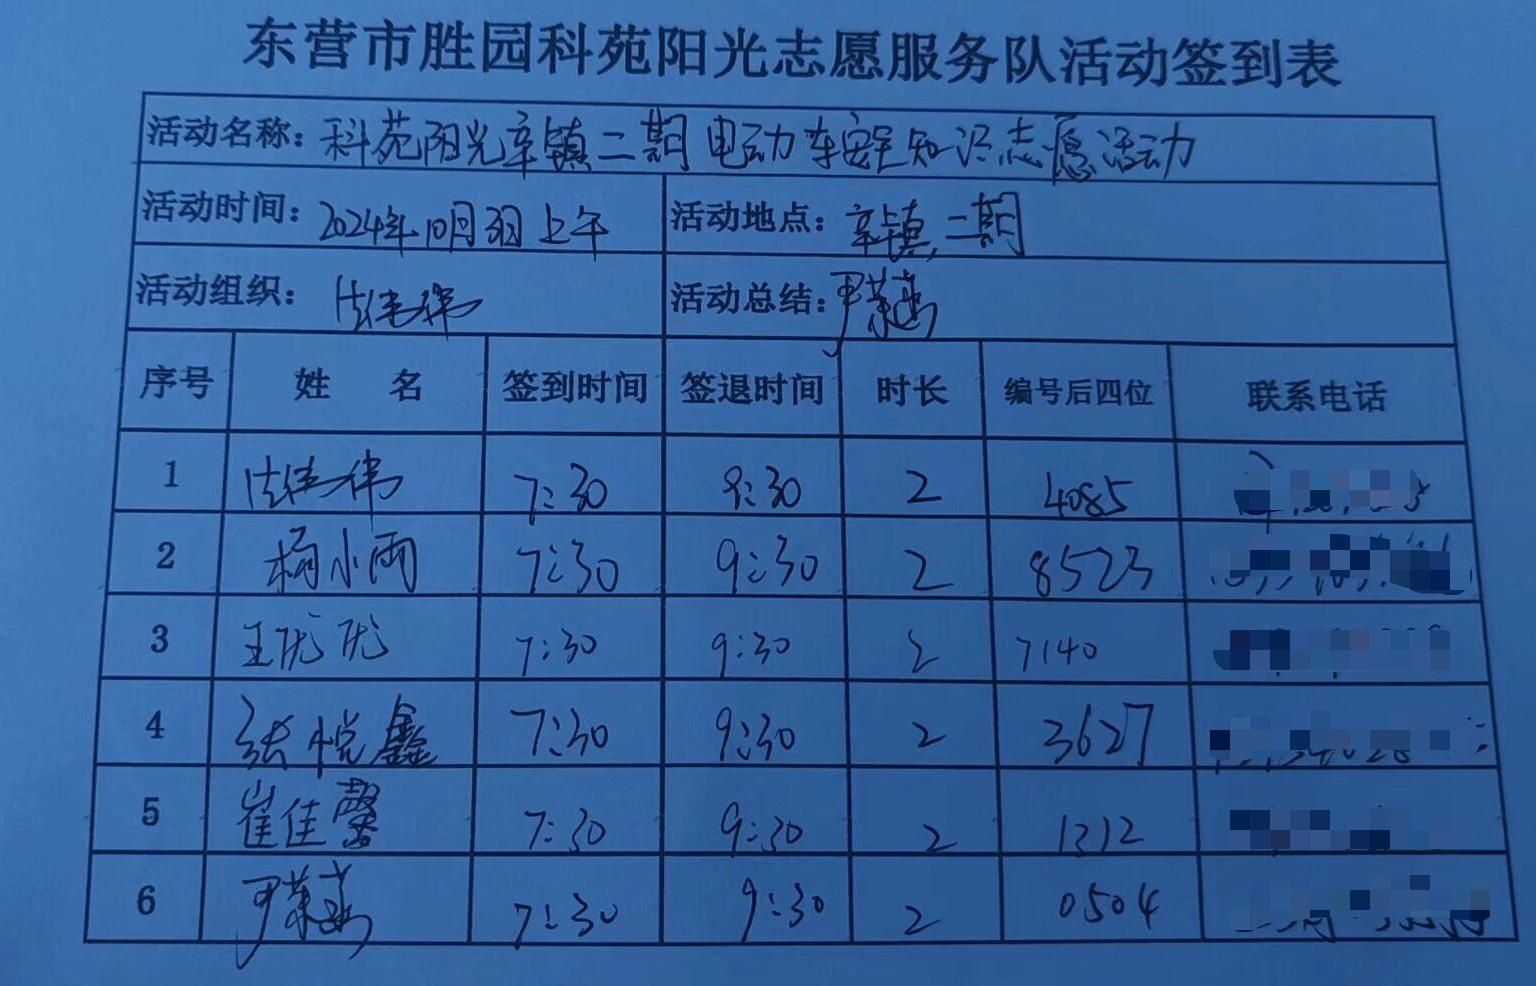 东营市胜园科苑阳光志愿服务队活动签到表
活动名称：科苑阳光辛镇二期电动车安全知识志愿活动
活动时间：2024年10月3日上午 活动地点：辛镇二期
活动组织： 活动总结：尹
序号 姓 名 签到时间 签退时间 时长 编号后四位 联系电话
1 7:30 9:30 2 4085
2 杨小雨 7:30 9:30 2 8523
3 王优优 7:30 9:30 2 7140
4 张悦鑫 7:30 9:30 2 3627
5 崔佳馨 7:30 9:30 2 1312
6 尹 7:30 9:30 2 0504